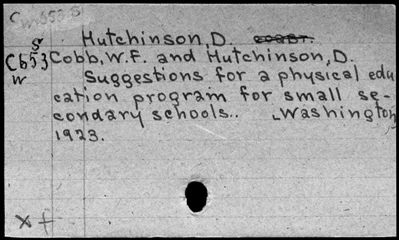 Hutchinson, D.
S
Cb53 Cobb, W.F. and Hutchinson, D.
w Suggestions for a physical edu
cation program for small se-
condary schools.. Washington,
1923.
x +